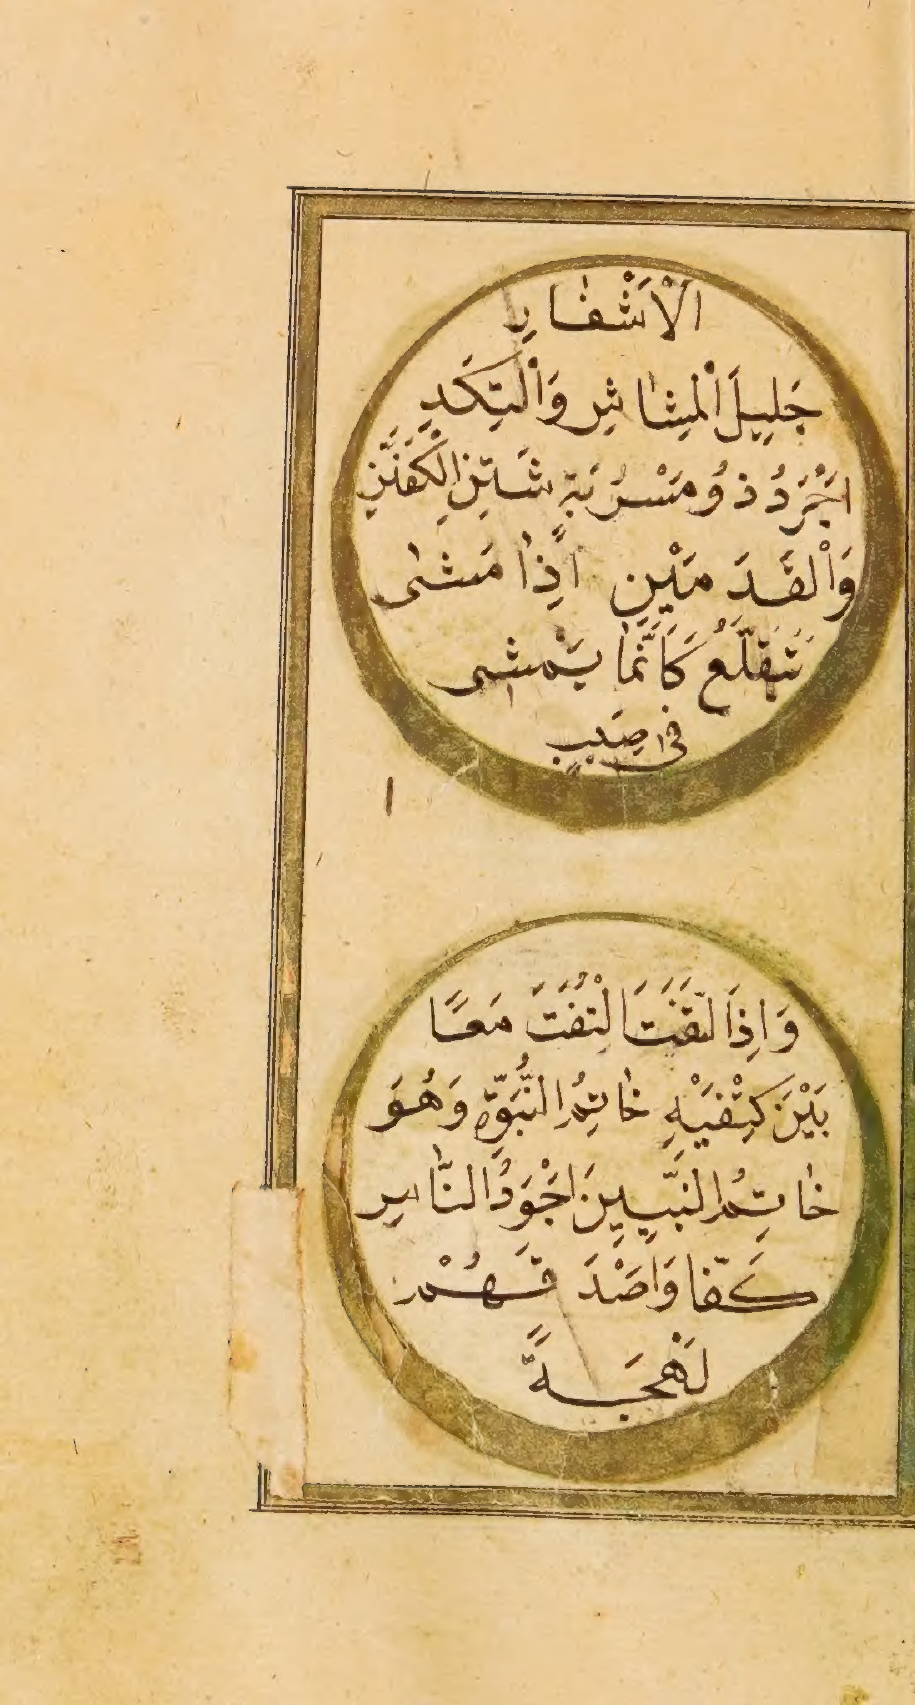 الْاَشْفَارِ
جَلِيلَ الْمِشَاشِ وَالْتِكَدِ
اَجْرَدُ ذُو مَسْرُبَةٍ شَتِنَ الْكَفَّيْنِ
وَالْقَدَمَيْنِ اِذَا مَشٰى
تَتَقَلَّعُ كَاَنَّمَا يَمْشِى
فِى صَبَبٍ
وَاِذَا لْتَفَتَ الْتَفَتَ مَعًا
بَيْنَ كَتِفَيْهِ خَاتِمُ النُّبُوَّةِ وَهُوَ
خَاتِمُ النَّبِيِّينَ اَجْوَدُ النَّاسِ
كَفًّا وَاَصْدَ قَهُمْ
لَهْجَةً